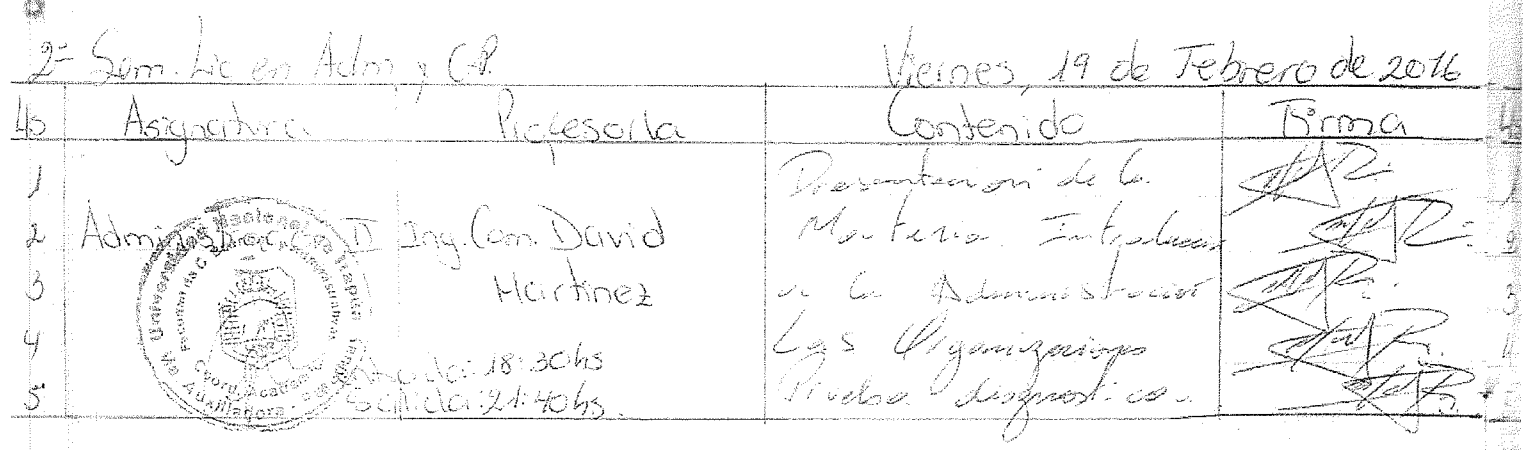 2º Sem. Lic en Adm y C.P. Viernes, 19 de Febrero de 2016
Hs Asignatura Profesor/a Contenido Firma
1 Presentación de la
2 Administración II Ing. Com. David Materia. Introducción
3 Martínez a la Administración
4 Entrada: 18:30hs Las Organizaciones
5 Salida: 21:40hs. Prueba diagnostica.
Universidad
Coord. Académ
Auxiliadora